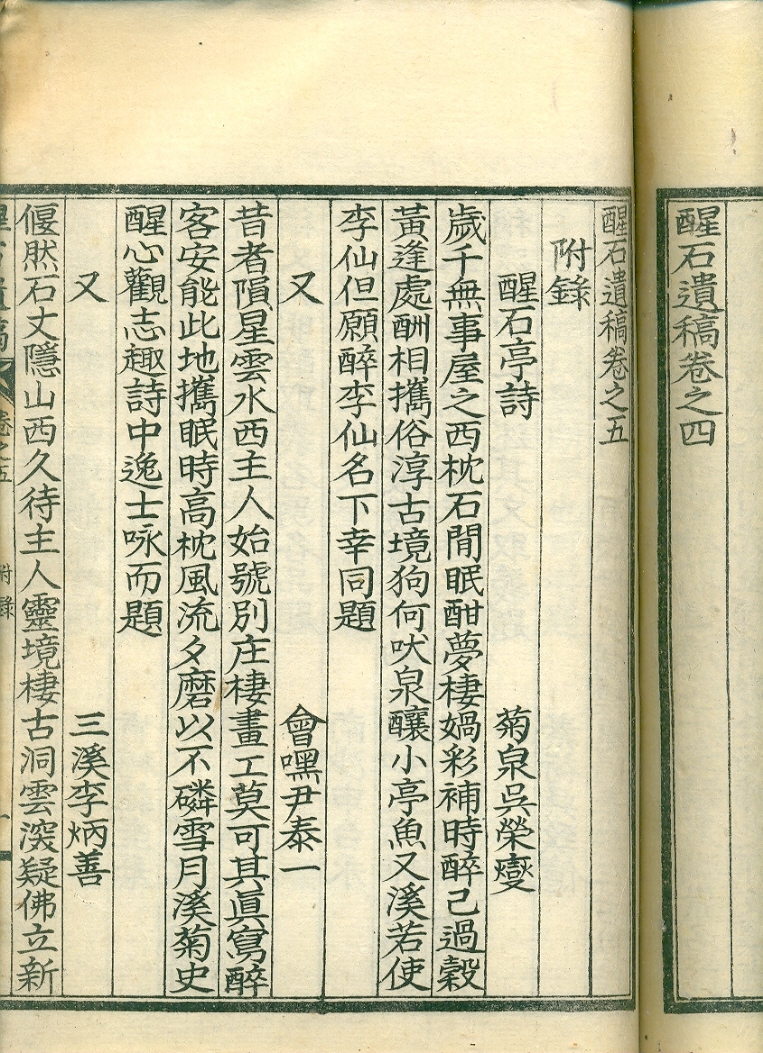 醒石遺稿卷之四
醒石遺稿卷之五
附錄
醒石亭詩 菊泉吳榮燮
歲千無事屋之西枕石閒眠酣夢棲媧彩補時醉已過穀
黃逢處酬相攜俗淳古境狗何吠泉釀小亭魚又溪若使
李仙但願醉李仙名下幸同題
又 會嘿尹泰一
昔者隕星雲水西主人始號別庄棲畫工莫可其眞寫醉
客安能此地攜眠時高枕風流夕磨以不磷雪月溪菊史
醒心觀志趣詩中逸士咏而題
又 三溪李炳善
偃然石丈隱山西久待主人靈境棲古洞雲深疑佛立新
卷之五 附錄